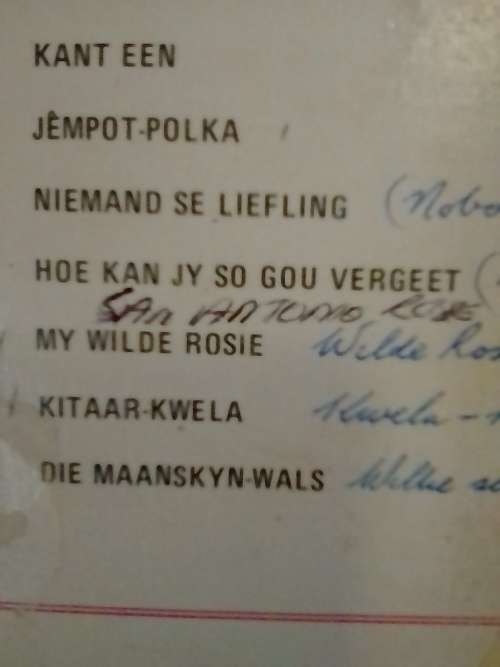 KANT EEN
JÊMPOT-POLKA
NIEMAND SE LIEFLING (Nobo
HOE KAN JY SO GOU VERGEET (
SAN ANTONIO ROSE
MY WILDE ROSIE Wilde Ros
KITAAR-KWELA Kwela -
DIE MAANSKYN-WALS Willie se